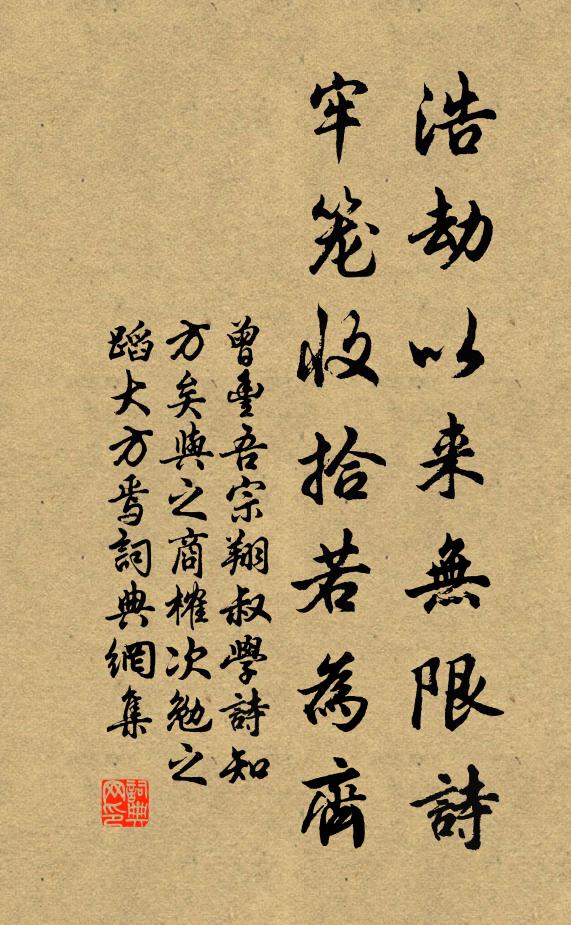 浩劫以来無限詩
牢笼收拾若為齊
曾豊吾宗翔叔學詩知
方矣與之商榷次勉之
蹈大方焉詞典網集
詞典网印